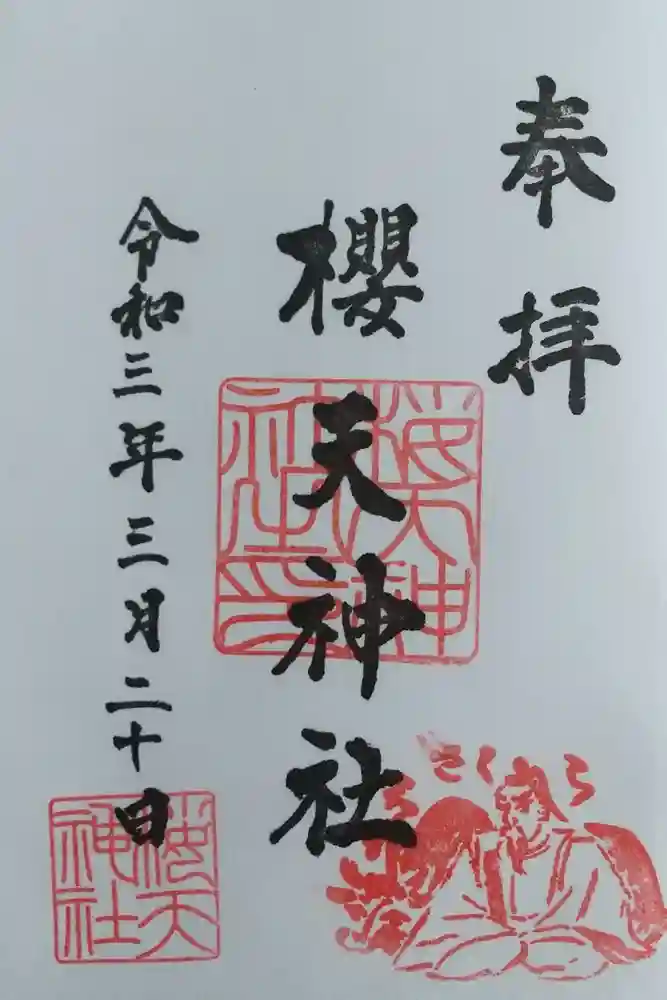 奉拝
櫻天神社
令和三年三月二十日
櫻天神社印
さくら
櫻天神社